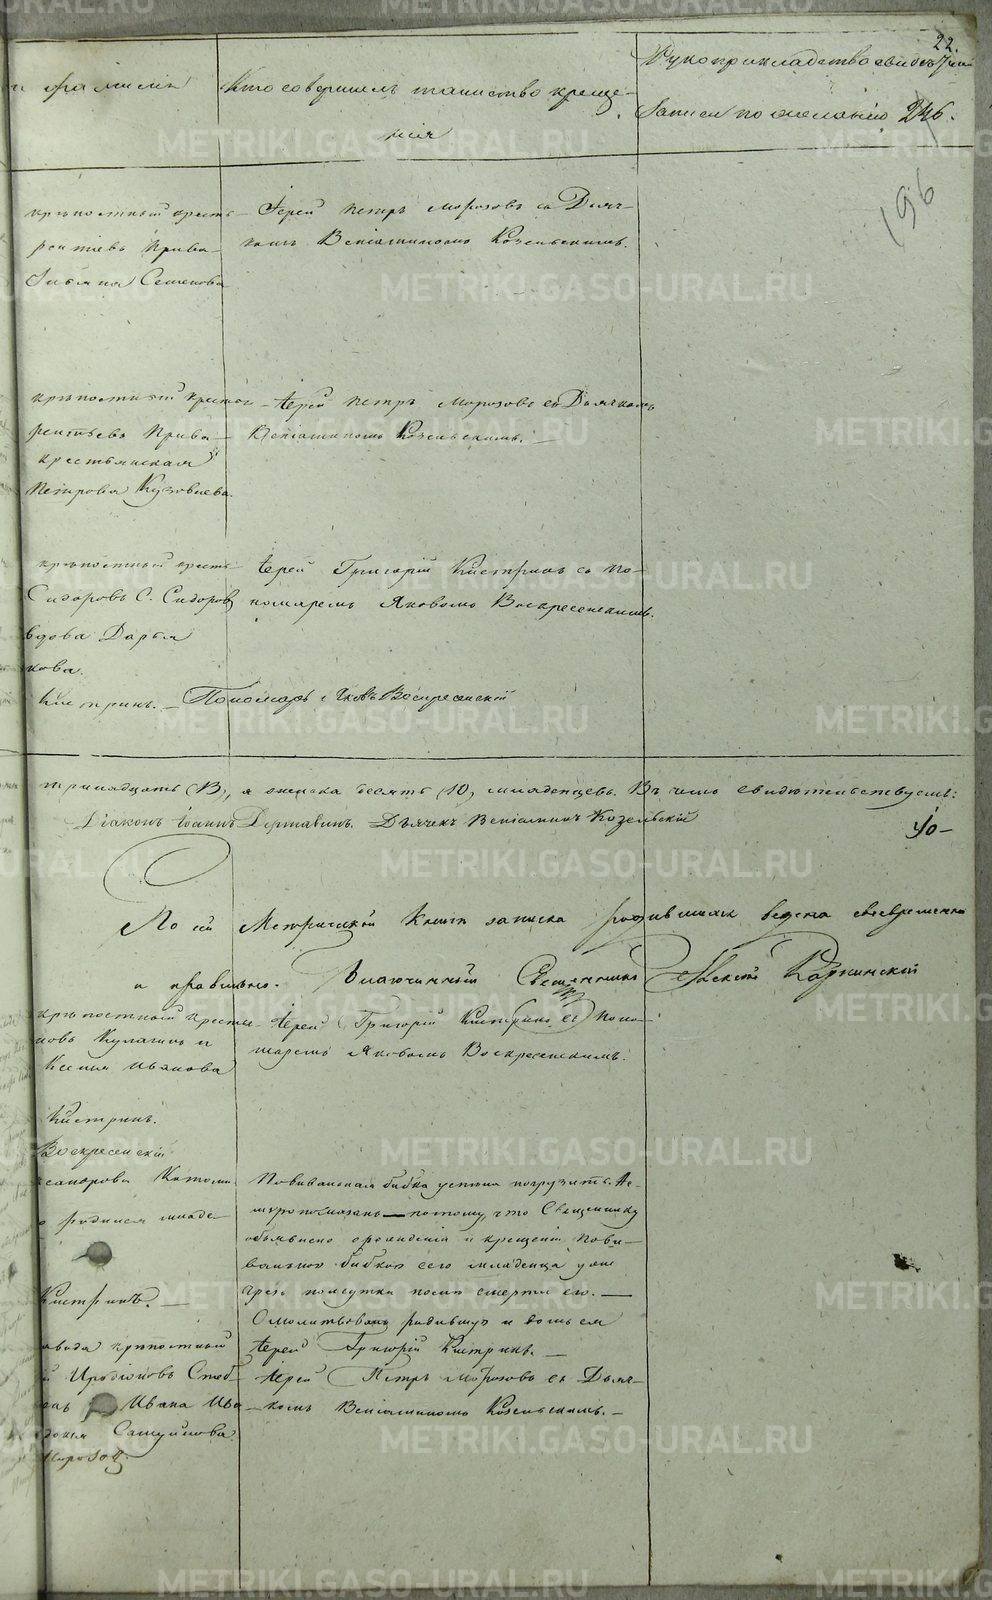 22.
и фамилія
Кто совершилъ таинство креще-
нія
Рукоприкладство свидѣтелей
записи по желанію 246.
196
крѣпостный кресть-
рентьевъ Прива-
Семенова
Іерей Петръ Морозовъ съ Дьяч-
комъ Веніаминомъ Козельскимъ.
крѣпостный крестья-
рентьевъ Прива-
крестьянская
Петрова Кузовлева.
Іерей Петръ Морозовъ съ Дьячкомъ
Веніаминомъ Козельскимъ.
крѣпостный кресть-
Сидоровъ С. Сидоров
вдова Дарья
кова.
Іерей Григорій Кистринъ съ по-
номаремъ Яковомъ Воскресенскимъ.
Кистринъ. Пономарь Яковъ Воскресенскій
тринадцать (13), а женска десять (10) младенцевъ. Въ чемъ свидѣтельствуемъ:
Діаконъ Іоаннъ Державинъ. Дьячекъ Веніаминъ Козельскій
По сей Метрической Книгѣ записка родившихся ведена своевременно
и правильно. Благочинный Священникъ Алексій
крѣпостный кресть-
новъ Кулагинъ и
Ксенія Иванова
Іерей Григорій Кистринъ съ Поно-
маремъ Яковомъ Воскресенскимъ.
Кистринъ.
Воскресенскій
родился младе-
Повивальная бабка успѣла погрузить. Не-
муропомазанъ потому, что Священнику
объявлено о рожденіи и крещеніи пови-
вальною бабкою сего младенца уже
чрезъ полсутки послѣ смерти его.
Кистринъ.
Омолитвовалъ родившую и
Іерей Григорій Кистринъ.
завода крѣпостный
Иродіоновъ
Ивана Ива-
Самуйлова
Морозовъ
Іерей Петръ Морозовъ съ Дьяч-
комъ Веніаминомъ Козельскимъ.
METRIKI.GASO-URAL.RU